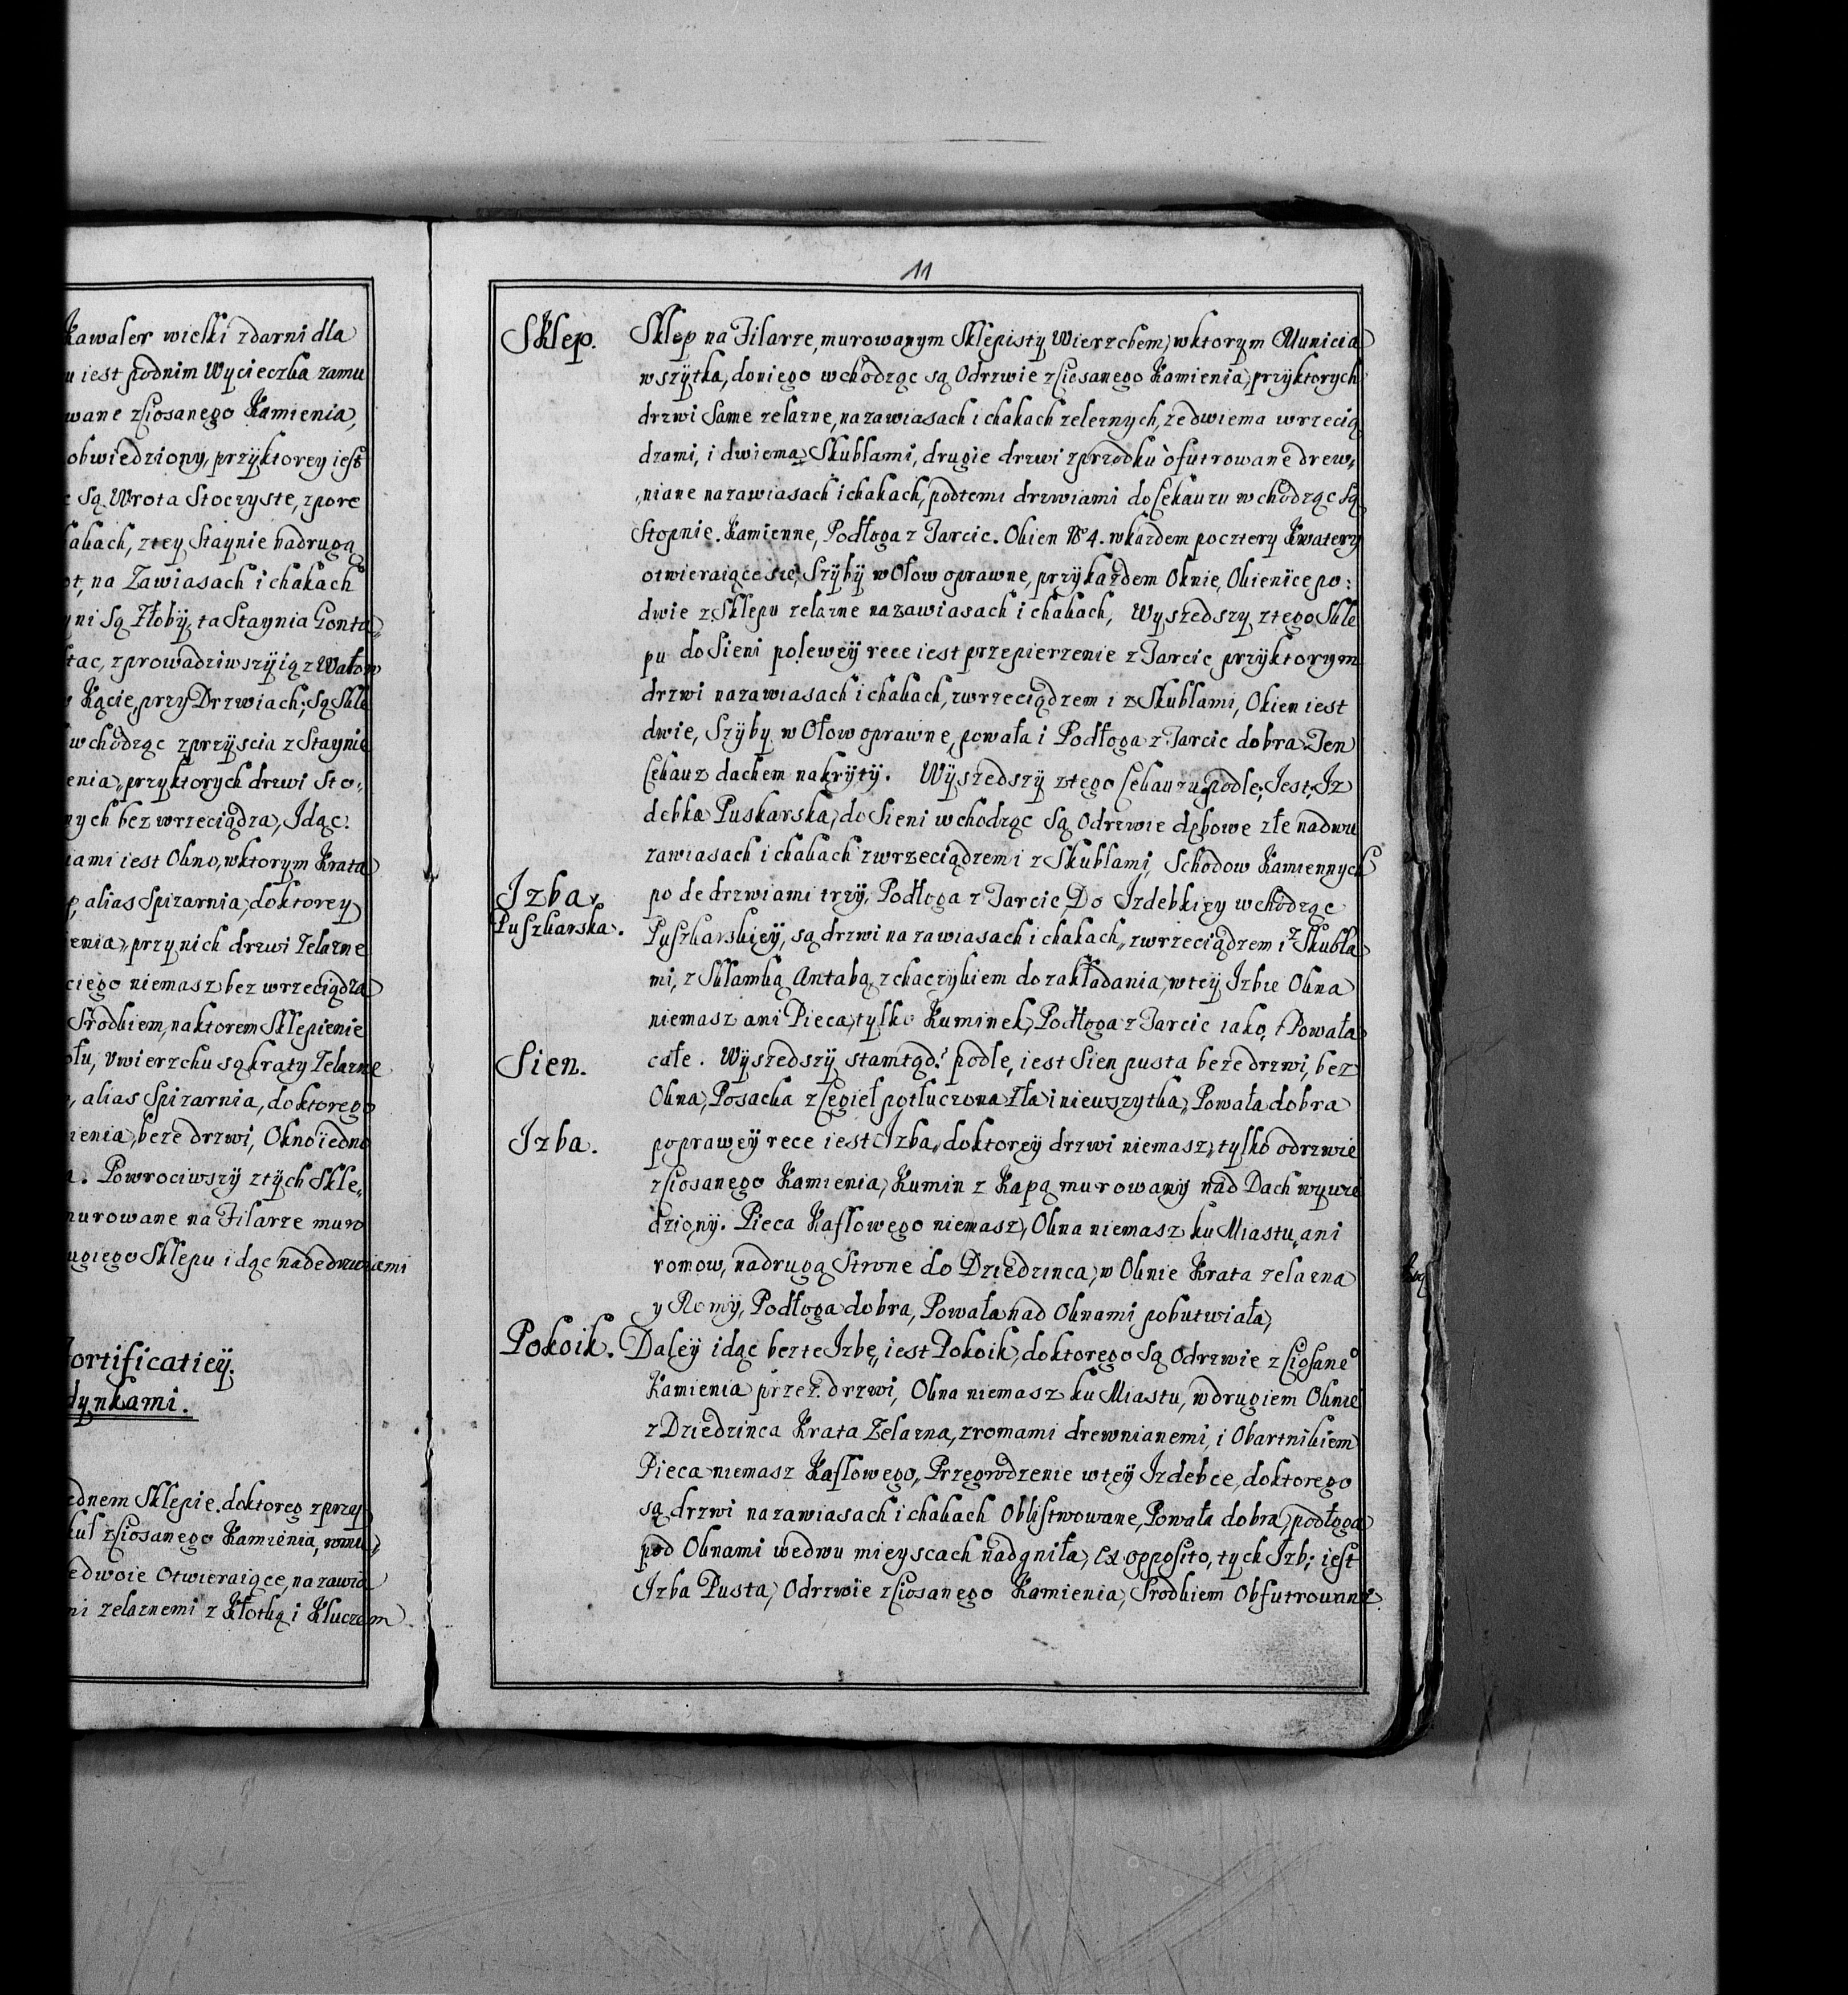 Kawaler wielki zdarni dla
u iest podnim Wycieczka zamu
wane zciosanego Kamienia,
obwiedziony, przyktorey iest
są Wrota Stoczyste, zpore
hakach, ztey Staynie nadrugą
na Zawiasach i chakach
yni Są Złoby, ta Staynia Gonta„
stac, zprowadziwszy ią z Wałow
Kącie, przy Drzwiach; są Skle
wchodząc zprzyscia z Staynie
enia, przyktorych drzwi Sto„
nych bez wrzeciądza, Idąc.
iami iest Okno, wktorym Krata
alias Spizarnia, doktorey
ienia, przynich drzwi Zelazne
ciego niemasz bez wrzeciądza
Srodkiem, naktorem Sklepienie
ołu, Vwierzchu są kraty Zelazne
alias Spizarnia, doktorego
ienia, beze drzwi, Okno iedno
a. Powrociwszy ztych Skle„
murowane na Filarze muro
ugiego Sklepu idąc nadedrzwiami
fortificatiey.
dynkami.
ednem Sklepie. doktoreg zprzy
zciosanego Kamienia, wmu„
edwoie Otwieraiące, na zawia
mi zelaznemi z Kłotką i Kluczem
11
Sklep. Sklep na Filarze, murowanym Sklepisty Wierzchem, wktorym Municia
wszytka, doniego wchodząc są Odrzwie zciesanego Kamienia, przyktorych
drzwi Same zelazne, na zawiasach i chakach zeleznych, ze dwiema wrzecią
dzami, i dwiema Skublami, drugie drzwi zprzodku ofutrowane drew„
„niane nazawiasach i chakach, podtemi drzwiami do Cekauzu wchodząc są
Stopnie. Kamienne, Podłoga z Tarcic. Okien N° 4. wkazdem pocztery Kwatery
otwieraiące się, Szyby w Ołow oprawne, przykazdem Oknie, Okienice po:
dwie z Sklepu zelazne nazawiasach i chakach, Wyszedszy ztego Skle
pu do Sieni polewey rece iest przepierzenie z Tarcic przyktorym
drzwi nazawiasach i chakach, zwrzeciądzem i z Skublami, Okien iest
dwie, Szyby w Ołow oprawne, powała i Podłoga z Tarcic dobra. Ten
Cekauz dachem nakryty. Wyszedszy ztego Cekauzu, podle; Iest; Iz
debka Puskarska, do Sieni wchodząc są Odrzwie dębowe złe nadwu
zawiasach i chakach zwrzeciądzem i z Skublami, Schodow Kamiennych
Izba Puszkarska. po de drzwiami trzy, Podłoga z Tarcic, Do Izdebki ey wchodząc
Puszkarskiey, są drzwi na zawiasach i chakach, zwrzeciądzem i z Skubla
mi, z Sklamką Antabą, z chaczykiem do zakładania, wtey Izbie Okna
niemasz ani Pieca, tylko Kuminek, Podłoga z Tarcic iako, t Powała
Sien. całe. Wyszedszy stamtąd: podle, iest Sien pusta beze drzwi, bez
Okna, Posacka z Cegieł potłuczona Zła i niewszytka, Powała dobra
Izba. poprawey rece iest Izba, doktorey drzwi niemasz, tylko odrzwie
zciosanego Kamienia, Kumin z Kapą murowany nad Dach wywie
dziony. Pieca Kaflowego niemasz, Okna niemasz ku Miastu, ani
romow, nadrugą Strone do Dziedzinca, w Oknie Krata zelazna
y Romy, Podłoga dobra, Powała nad Oknami pobutwiała,
Pokoik. Daley idąc bez te Izbę, iest Pokoik, doktorego są Odrzwie z ciosane°
Kamienia przez drzwi, Okna niemasz ku Miastu, wdrugiem Oknie
z Dziedzinca Krata Zelazna, zromami drewnianemi, i Obartnikiem
Pieca niemasz Kaflowego, Przegrodzenie wtey Izdebce, doktorego
są drzwi nazawiasach i chakach Oblistwowane, Powała dobra, podłoga
pod Oknami wedwu mieyscach nadgniła, Ex opposito, tych Izb; iest
Izba Pusta, Odrzwie zciosanego Kamienia, Srodkiem Obfutrowane